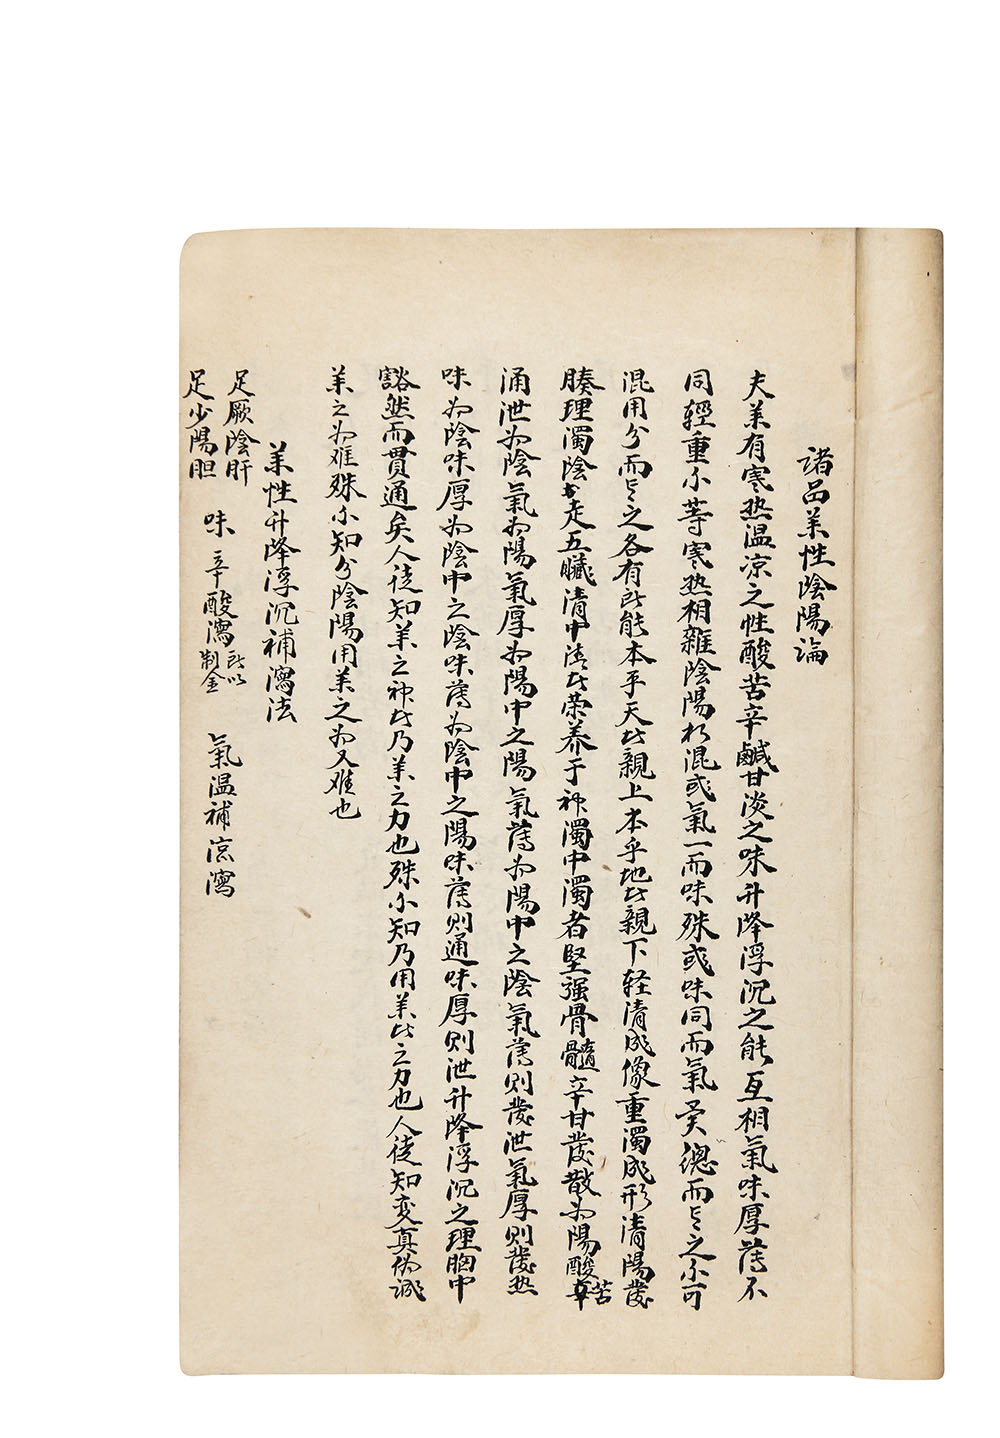 諸品薬性陰陽論
夫薬有寒热温凉之性酸苦辛鹹甘淡之味升降浮沉之能互相氣味厚薄不
同輕重不等寒热相雜陰陽相混或氣一而味殊或味同而氣異總而言之不可
混用分而言之各有所能本乎天者親上本乎地者親下轻清成像重濁成形清陽發
腠理濁陰走五臟清中清者荣养于神濁中濁者坚强骨髓辛甘發散为陽酸苦
涌泄为陰氣为陽氣厚为陽中之陽氣薄为陽中之陰氣薄则發泄氣厚则發热
味为陰味厚为陰中之陰味薄为陰中之陽味薄则通味厚则泄升降浮沉之理胸中
豁然而貫通矣人徒知薬之神者乃薬之力也殊不知乃用薬者之力也人徒知变真伪识
薬之为难殊不知分陰陽用薬之为又难也
薬性升降浮沉補瀉法
足厥陰肝
足少陽胆
味 辛酸瀉 所以制金 氣温補凉瀉